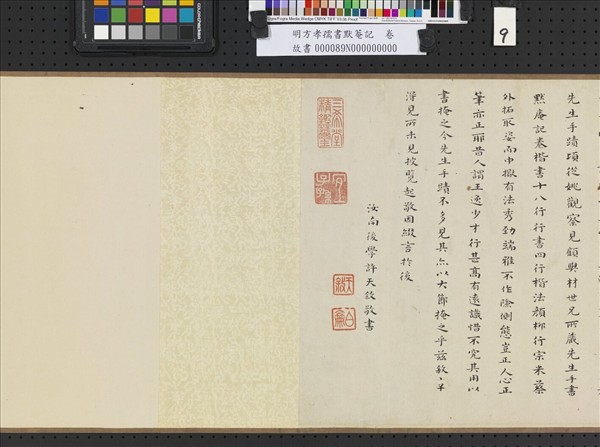 9
明方孝孺書默菴記　卷
故書 000089N000000000
先生手蹟頃從姚觀察見顧與材世兄所藏先生手書
默庵記卷楷書十八行行書四行楷法顏柳行宗米蔡
外拓取姿而中擫有法秀勁端雅不作險側態豈正人心正
筆亦正耶昔人謂王逸少才行甚高有遠識惜不究其用以
書掩之今先生手蹟不多見其亦以大節掩之乎茲敘
得見所未見披覽起敬因綴言於後
汝南後學許天敘敬書
三希堂精鑑璽
宜子孫
天敘